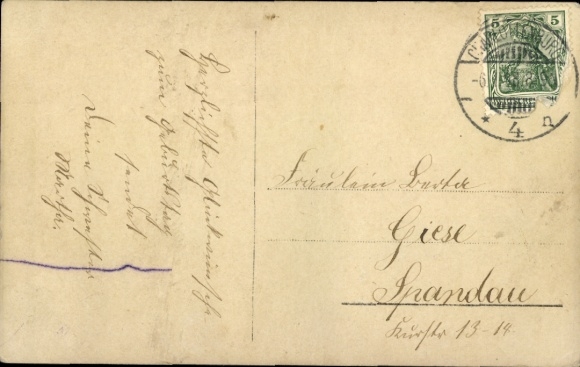 Herzlichste Glückwünsche
zum Geburtstag
sendet
Deine Schwester
Martha.
5 5
CHARLOTTENBURG
4 n
Fräulein Berta
Giese
Spandau
Kurstr 13-14